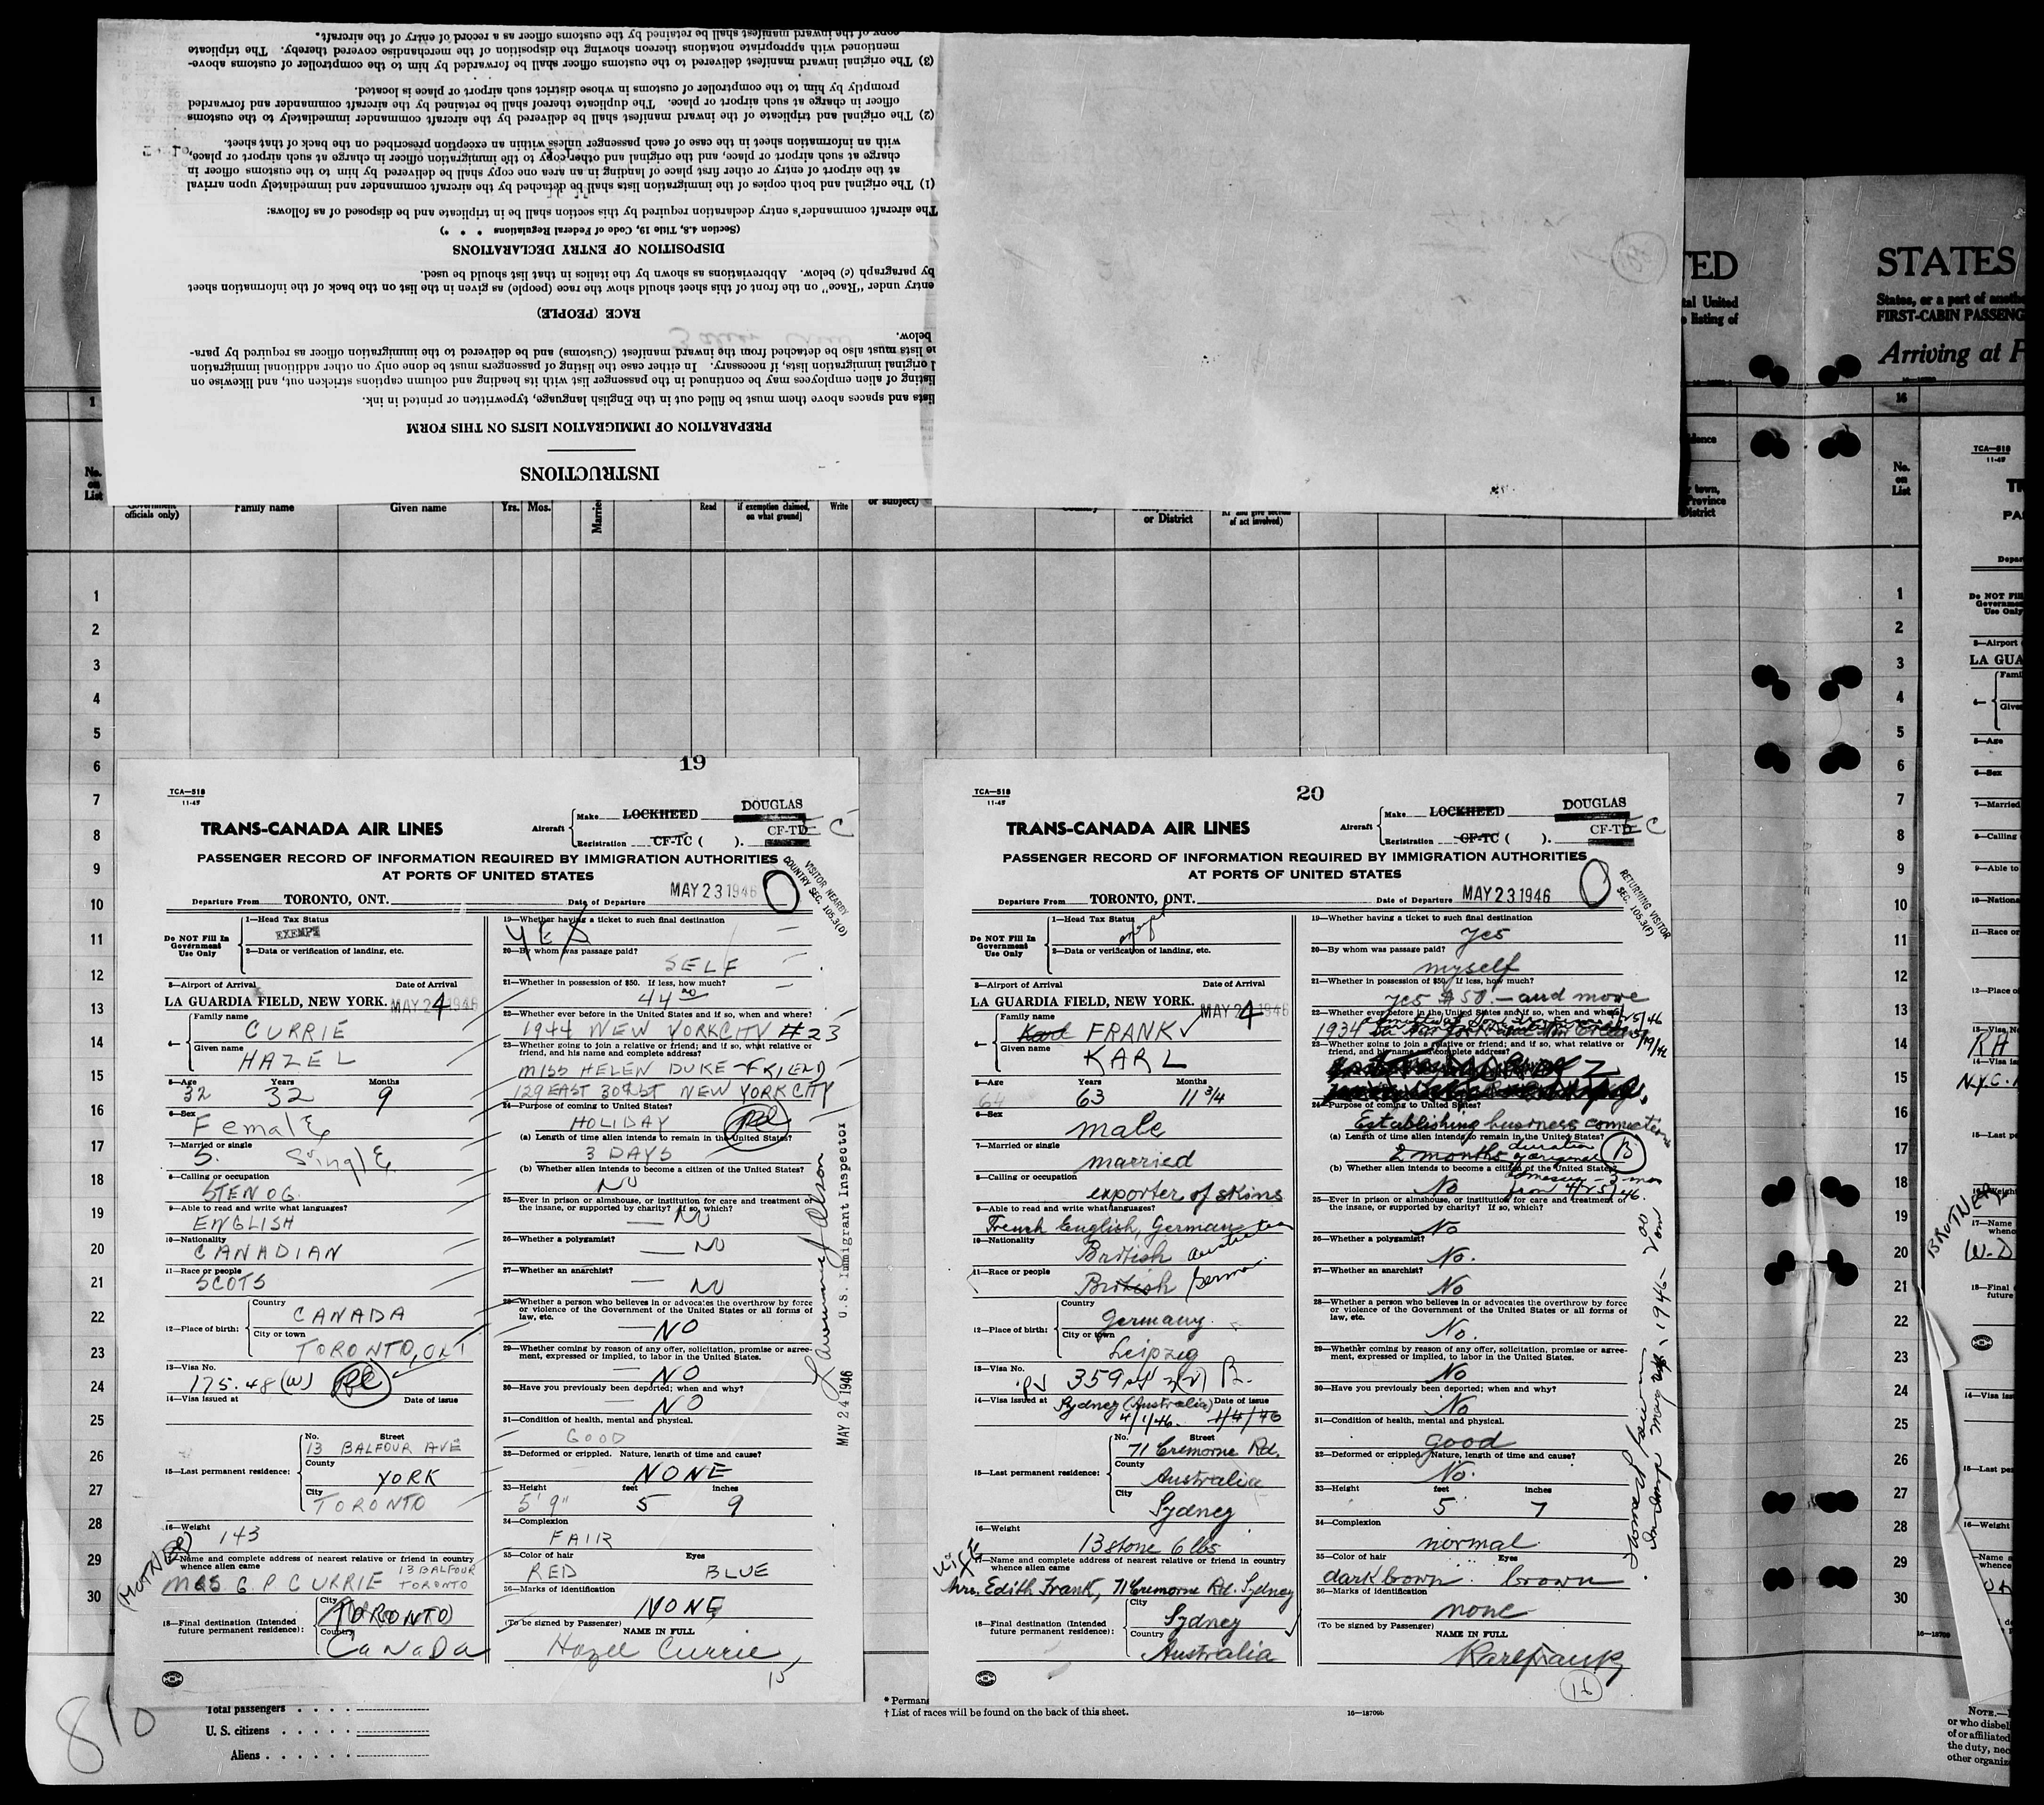 INSTRUCTIONS
PREPARATION OF IMMIGRATION LISTS ON THIS FORM
lists and spaces above them must be filled out in the English language, typewritten or printed in ink.
listing of alien employees may be continued in the passenger list with its heading and column captions stricken out, and likewise on
original immigration lists, if necessary. In either case the listing of passengers must be done only on other additional immigration
lists must also be detached from the inward manifest (Customs) and be delivered to the immigration officer as required by para-
below.
RACE (PEOPLE)
entry under "Race" on the front of this sheet should show the race (people) as given in the list on the back of the information sheet
by paragraph (c) below. Abbreviations as shown by the italics in that list should be used.
DISPOSITION OF ENTRY DECLARATIONS
(Section 4.8, Title 19, Code of Federal Regulations * * *)
The aircraft commander's entry declaration required by this section shall be in triplicate and be disposed of as follows:
(1) The original and both copies of the immigration lists shall be detached by the aircraft commander and immediately upon arrival
at the airport of entry or other first place of landing in an area one copy shall be delivered by him to the customs officer in
charge at such airport or place, and the original and other copy to the immigration officer in charge at such airport or place,
with an information sheet in the case of each passenger unless within an exception prescribed on the back of that sheet.
(2) The original and triplicate of the inward manifest shall be delivered by the aircraft commander immediately to the customs
officer in charge at such airport or place. The duplicate thereof shall be retained by the aircraft commander and forwarded
promptly by him to the comptroller of customs in whose district such airport or place is located.
(3) The original inward manifest delivered to the customs officer shall be forwarded by him to the comptroller of customs above-
mentioned with appropriate notations thereon showing the disposition of the merchandise covered thereby. The triplicate
copy of the inward manifest shall be retained by the customs officer as a record of entry of the aircraft.
No. on List
officials only)
Family name
Given name
Yrs. Mos.
Read
if exemption claimed, on what ground]
Write
or subject)
or District
of act involved)
1
2
3
4
5
6
7
8
9
10
11
12
13
14
15
16
17
18
19
20
21
22
23
24
25
26
27
28
29
30
19
TCA—518
11-45
TRANS-CANADA AIR LINES
Aircraft
Make LOCKHEED DOUGLAS
Registration CF-TC ( ). CF-TD C
PASSENGER RECORD OF INFORMATION REQUIRED BY IMMIGRATION AUTHORITIES
AT PORTS OF UNITED STATES
VISITOR NEARBY
COUNTRY SEC. 105.3(D)
Departure From TORONTO, ONT. Date of Departure MAY 23 1946
Do NOT Fill In
Government
Use Only
1—Head Tax Status
EXEMPT
2—Data or verification of landing, etc.
3—Airport of Arrival Date of Arrival
LA GUARDIA FIELD, NEW YORK. MAY 24 1946
4—
Family name
CURRIE
Given name
HAZEL
5—Age Years Months
32 32 9
6—Sex
Female
7—Married or single
S. Single
8—Calling or occupation
STENOG.
9—Able to read and write what languages?
ENGLISH
10—Nationality
CANADIAN
11—Race or people
SCOTS
12—Place of birth:
Country
CANADA
City or town
TORONTO, ONT
13—Visa No.
175.48 (W)
14—Visa issued at Date of issue
15—Last permanent residence:
No. Street
13 BALFOUR AVE
County
YORK
City
TORONTO
16—Weight
143
(MOTHER)
17—Name and complete address of nearest relative or friend in country
whence alien came
MRS G. P CURRIE 13 BALFOUR
TORONTO
18—Final destination (Intended
future permanent residence):
City
TORONTO
Country
CaNaDa
19—Whether having a ticket to such final destination
YES
20—By whom was passage paid?
SELF
21—Whether in possession of $50. If less, how much?
44
22—Whether ever before in the United States and if so, when and where?
1944 NEW YORK CITY #23
23—Whether going to join a relative or friend; and if so, what relative or
friend, and his name and complete address?
MISS HELEN DUKE - FRIEND
129 EAST 30th ST NEW YORK CITY
24—Purpose of coming to United States?
HOLIDAY
(a) Length of time alien intends to remain in the United States?
3 DAYS
(b) Whether alien intends to become a citizen of the United States?
NO
25—Ever in prison or almshouse, or institution for care and treatment of
the insane, or supported by charity? If so, which?
NO
26—Whether a polygamist?
NO
27—Whether an anarchist?
NO
28—Whether a person who believes in or advocates the overthrow by force
or violence of the Government of the United States or all forms of
law, etc.
NO
29—Whether coming by reason of any offer, solicitation, promise or agree-
ment, expressed or implied, to labor in the United States.
NO
30—Have you previously been deported; when and why?
NO
31—Condition of health, mental and physical.
GOOD
32—Deformed or crippled. Nature, length of time and cause?
NONE
33—Height feet inches
5' 9" 5 9
34—Complexion
FAIR
35—Color of hair Eyes
RED BLUE
36—Marks of identification
NONE
(To be signed by Passenger) NAME IN FULL
Hazel Currie
15
MAY 24 1946 U.S. Immigrant Inspector
20
TCA—518
11-45
TRANS-CANADA AIR LINES
Aircraft
Make LOCKHEED DOUGLAS
Registration CF-TC ( ). CF-TD C
PASSENGER RECORD OF INFORMATION REQUIRED BY IMMIGRATION AUTHORITIES
AT PORTS OF UNITED STATES
RETURNING VISITOR
SEC. 105.3(F)
Departure From TORONTO, ONT. Date of Departure MAY 23 1946
Do NOT Fill In
Government
Use Only
1—Head Tax Status
2—Data or verification of landing, etc.
3—Airport of Arrival Date of Arrival
LA GUARDIA FIELD, NEW YORK. MAY 24 1946
4—
Family name
Karl FRANK
Given name
KARL
5—Age Years Months
64 63 11 3/4
6—Sex
male
7—Married or single
married
8—Calling or occupation
exporter of skins
9—Able to read and write what languages?
French English, German
10—Nationality
British Australia
11—Race or people
British German
12—Place of birth:
Country
Germany
City or town
Leipzig
13—Visa No.
359
14—Visa issued at Date of issue
Sydney (Australia) 1/4/46
4/1/46.
15—Last permanent residence:
No. Street
71 Cremorne Rd.
County
Australia
City
Sydney
16—Weight
13 stone 6 lbs
wife
17—Name and complete address of nearest relative or friend in country
whence alien came
Mrs. Edith Frank, 71 Cremorne Rd. Sydney
18—Final destination (Intended
future permanent residence):
City
Sydney
Country
Australia
19—Whether having a ticket to such final destination
yes
20—By whom was passage paid?
myself
21—Whether in possession of $50. If less, how much?
yes $50.— and more
22—Whether ever before in the United States and if so, when and where?
1934
23—Whether going to join a relative or friend; and if so, what relative or
friend, and his name and complete address?
24—Purpose of coming to United States?
Establishing business connections
(a) Length of time alien intends to remain in the United States?
2 months duration
(b) Whether alien intends to become a citizen of the United States?
No from 4/25/46.
25—Ever in prison or almshouse, or institution for care and treatment of
the insane, or supported by charity? If so, which?
No
26—Whether a polygamist?
No.
27—Whether an anarchist?
No
28—Whether a person who believes in or advocates the overthrow by force
or violence of the Government of the United States or all forms of
law, etc.
No.
29—Whether coming by reason of any offer, solicitation, promise or agree-
ment, expressed or implied, to labor in the United States.
No
30—Have you previously been deported; when and why?
No
31—Condition of health, mental and physical.
good
32—Deformed or crippled. Nature, length of time and cause?
No.
33—Height feet inches
5 7
34—Complexion
normal
35—Color of hair Eyes
dark brown. brown
36—Marks of identification
none
(To be signed by Passenger) NAME IN FULL
Karl Frank
16
810
Total passengers
U. S. citizens
Aliens
* Perman
† List of races will be found on the back of this sheet.
16—18709b
STATES
States, or a part of anoth
FIRST-CABIN PASSENG
Arriving at P
16
No. on List
1
2
3
4
5
6
7
8
9
10
11
12
13
14
15
16
17
18
19
20
21
22
23
24
25
26
27
28
29
30
TCA—518
11-45
LA GUA
BROTHER
NOTE.—
or who disbel
of or affiliated
the duty, nec
other organiz